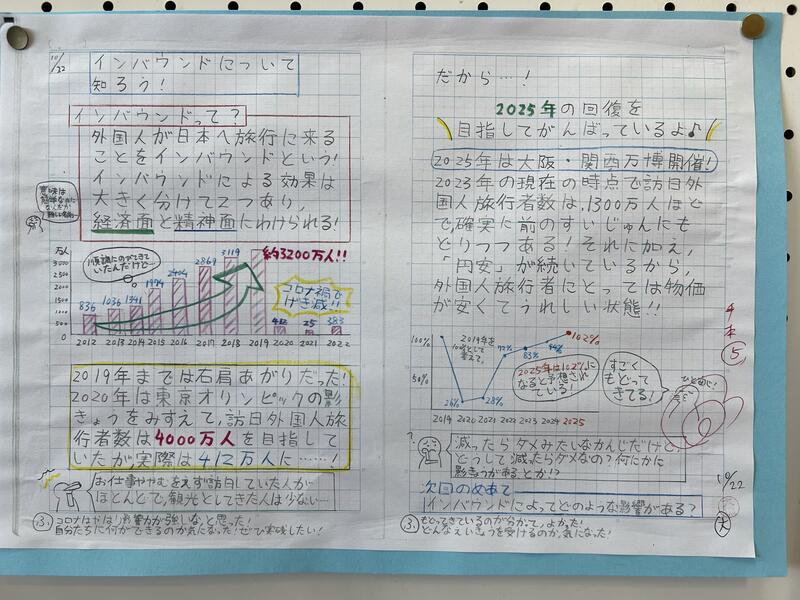 10/22
インバウンドについて
知ろう!
インバウンドって?
外国人が日本へ旅行に来る
ことをインバウンドという!
インバウンドによる効果は
大きく分けて2つあり、
経済面と精神面にわけられる!
意味は
順調にのびてきて
いたんだけど…
約3200万人!!
コロナ禍で
げき減!!
万人
3000
2500
2000
1500
1000
500
0
836 1036 1341 1974 2404 2869 3119 412 25 383
2012 2013 2014 2015 2016 2017 2018 2019 2020 2021 2022
2019年までは右肩あがりだった!
2020年は東京オリンピックの影
きょうをみすえて、訪日外国人旅
行者数は4000万人を目指して
いたが、実際は412万人に……!
お仕事やむをえず訪日していた人が
ほとんどで、観光としてきた人は少ない…
コロナはやはり影響力が強いなと思った!
自分たちに何ができるのか気になった!ぜひ実践したい!
だから…!
2025年の回復を
目指してがんばっているよ♪
2025年は大阪・関西万博開催!
2023年の現在の時点で訪日外
国人旅行者数は、1300万人ほど
で確実に前のすいじゅんにも
どりつつある!それに加え、
「円安」が続いているから、
外国人旅行者にとっては物価
が安くてうれしい状態!!
100%
50%
2019年を
100%として
考えて、
26% 28% 72% 83% 94% 102%
2025年は102%に
なると予想され
ている!
すごく
もどって
きてる!
2019 2020 2021 2022 2023 2024 2025
?
減ったらダメみたいなかんじだけど、
どうして減ったらダメなの?何にかに
影きょうがあるとか!?
次回のめあて
インバウンドによってどのような影響がある?
もどってきているのが分かって、よかった!
どんなえいきょうを受けるのか、気になった!
5
10/22